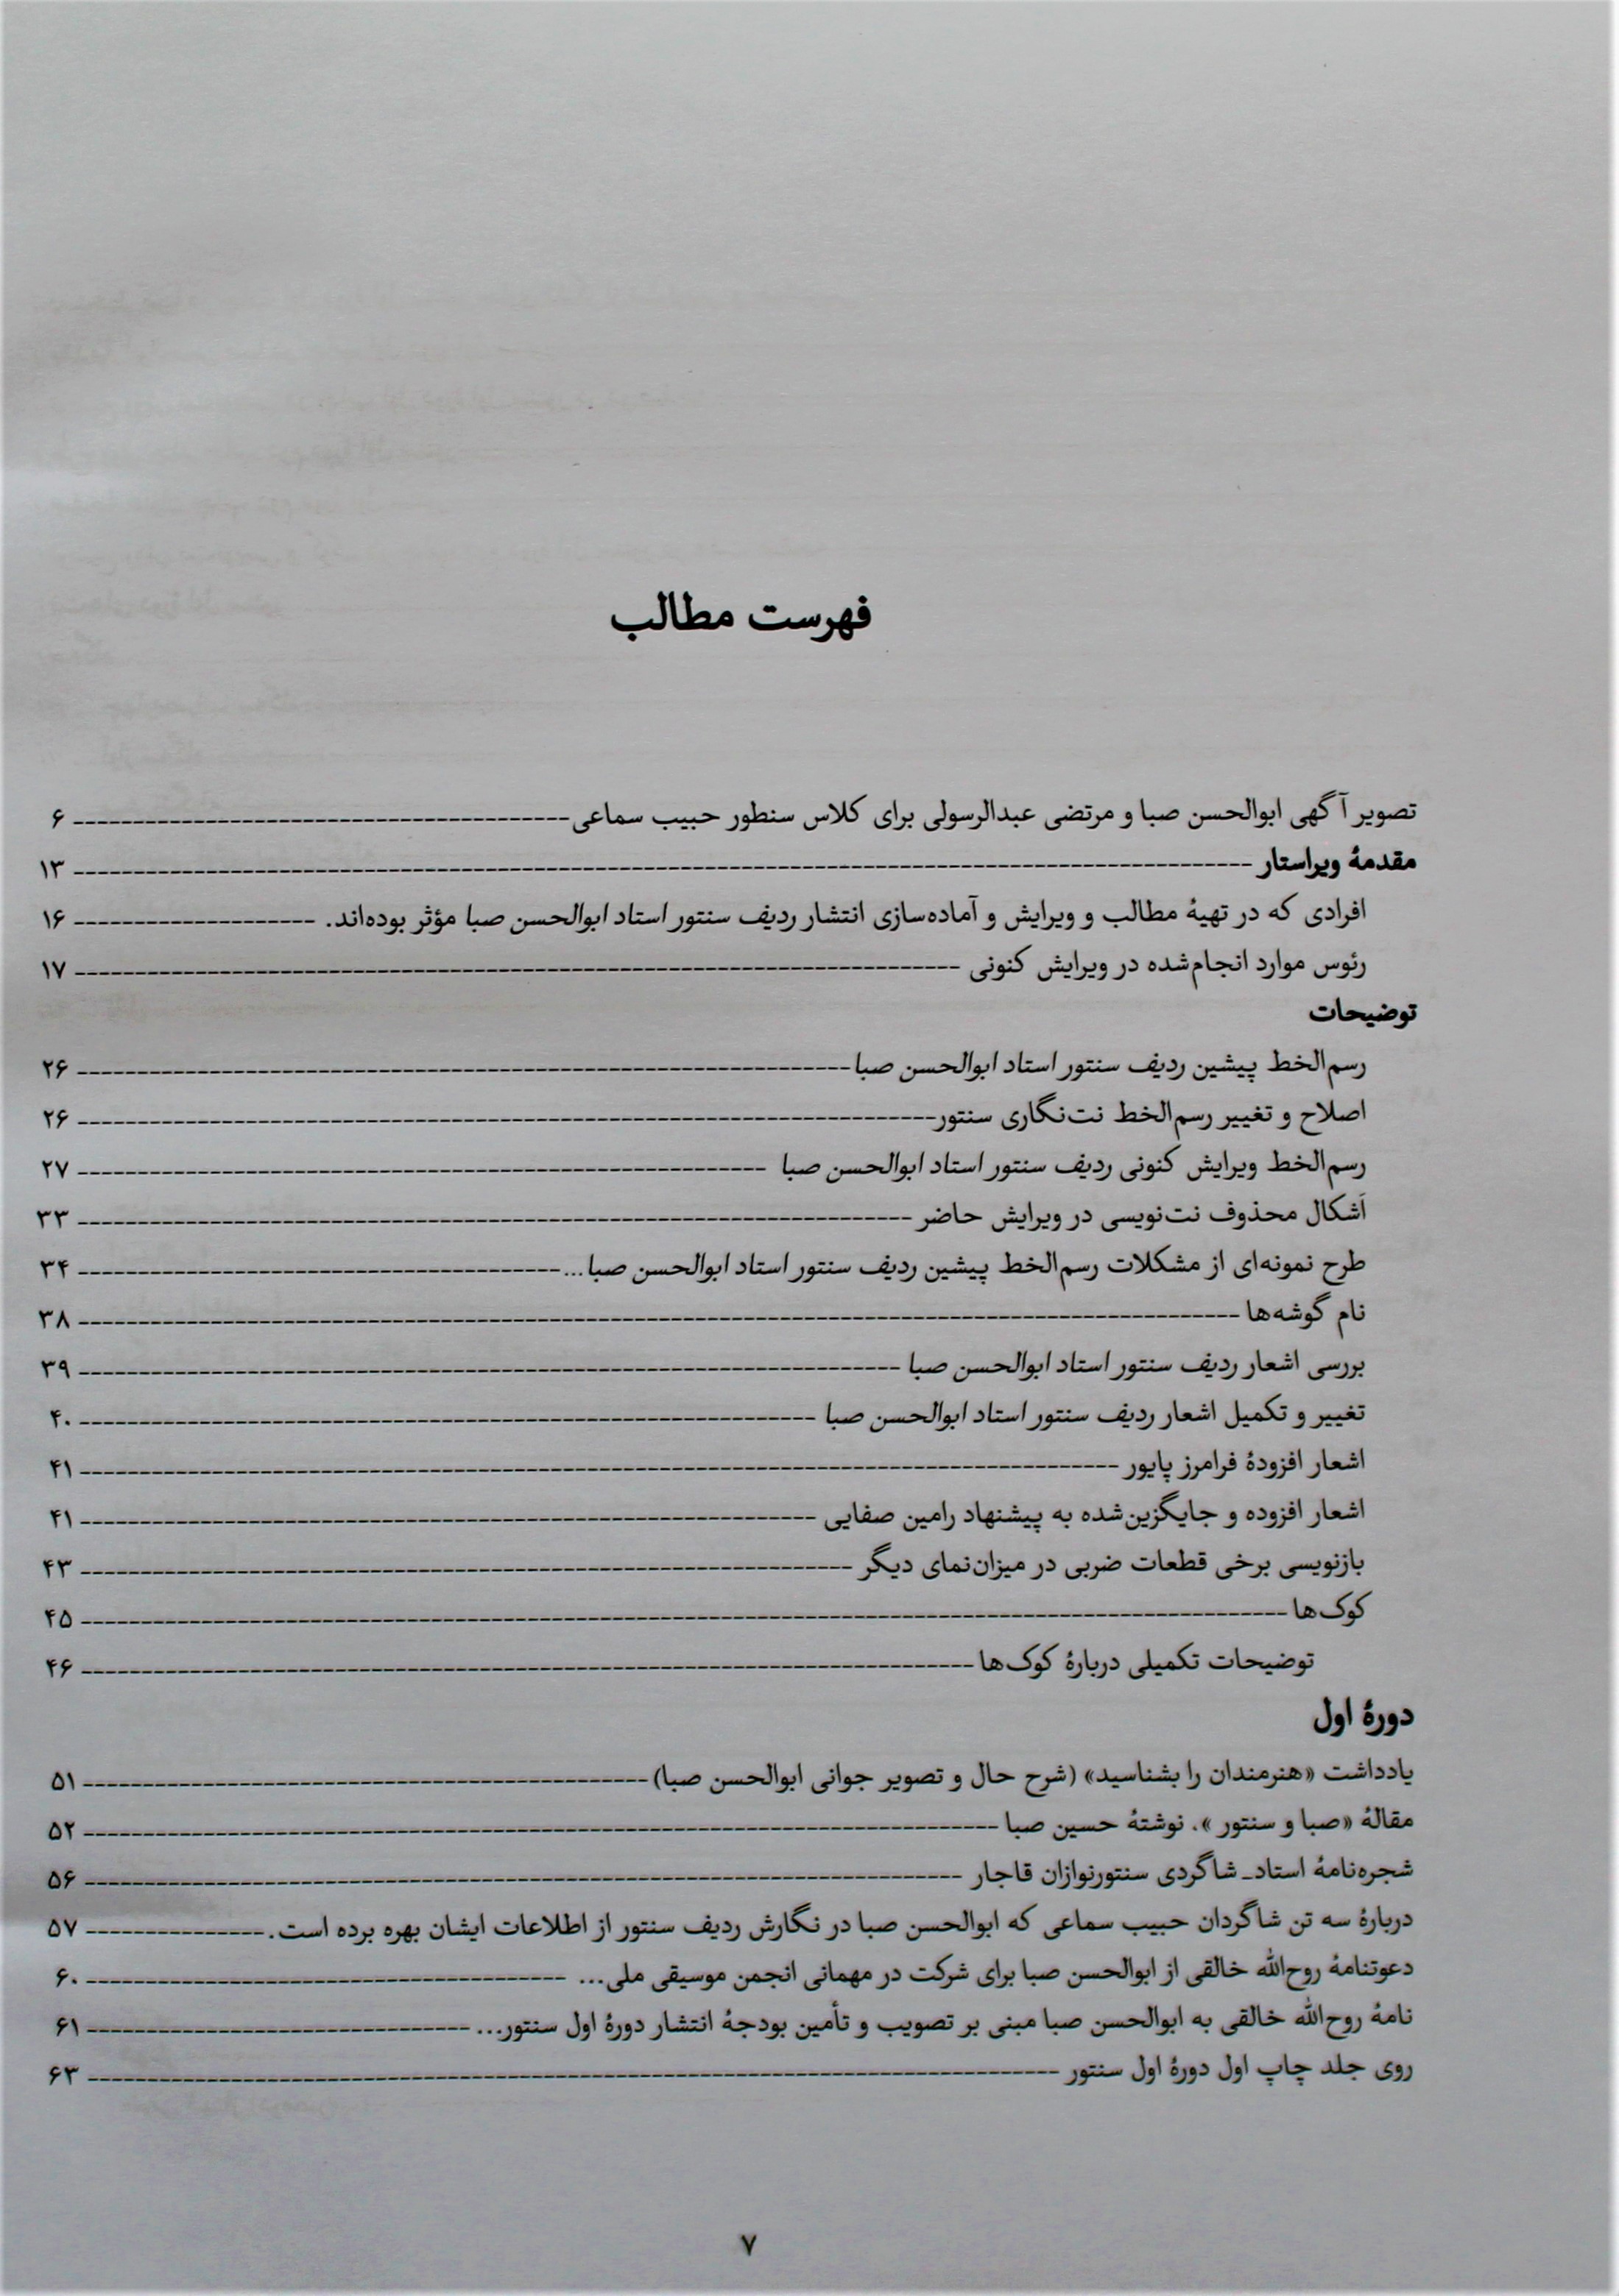 فهرست مطالب
تصویر آگهی ابوالحسن صبا و مرتضی عبدالرسولی برای کلاس سنطور حبیب سماعی ۶
مقدمهٔ ویراستار ۱۳
افرادی که در تهیهٔ مطالب و ویرایش و آماده‌سازی انتشار ردیف سنتور استاد ابوالحسن صبا مؤثر بوده‌اند. ۱۶
رئوس موارد انجام‌شده در ویرایش کنونی ۱۷
توضیحات
رسم‌الخط پیشین ردیف سنتور استاد ابوالحسن صبا ۲۶
اصلاح و تغییر رسم‌الخط نت‌نگاری سنتور ۲۶
رسم‌الخط ویرایش کنونی ردیف سنتور استاد ابوالحسن صبا ۲۷
اَشکال محذوف نت‌نویسی در ویرایش حاضر ۳۳
طرح نمونه‌ای از مشکلات رسم‌الخط پیشین ردیف سنتور استاد ابوالحسن صبا... ۳۴
نام گوشه‌ها ۳۸
بررسی اشعار ردیف سنتور استاد ابوالحسن صبا ۳۹
تغییر و تکمیل اشعار ردیف سنتور استاد ابوالحسن صبا ۴۰
اشعار افزودهٔ فرامرز پایور ۴۱
اشعار افزوده و جایگزین‌شده به پیشنهاد رامین صفایی ۴۱
بازنویسی برخی قطعات ضربی در میزان‌نمای دیگر ۴۳
کوک‌ها ۴۵
توضیحات تکمیلی دربارهٔ کوک‌ها ۴۶
دورهٔ اول
یادداشت «هنرمندان را بشناسید» (شرح حال و تصویر جوانی ابوالحسن صبا) ۵۱
مقالهٔ «صبا و سنتور»، نوشتهٔ حسین صبا ۵۲
شجره‌نامهٔ استاد_ شاگردی سنتورنوازان قاجار ۵۶
دربارهٔ سه تن شاگردان حبیب سماعی که ابوالحسن صبا در نگارش ردیف سنتور از اطلاعات ایشان بهره برده است. ۵۷
دعوتنامهٔ روح‌الله خالقی از ابوالحسن صبا برای شرکت در مهمانی انجمن موسیقی ملی... ۶۰
نامهٔ روح‌الله خالقی به ابوالحسن صبا مبنی بر تصویب و تأمین بودجهٔ انتشار دورهٔ اول سنتور... ۶۱
روی جلد چاپ اول دورهٔ اول سنتور ۶۳
۷